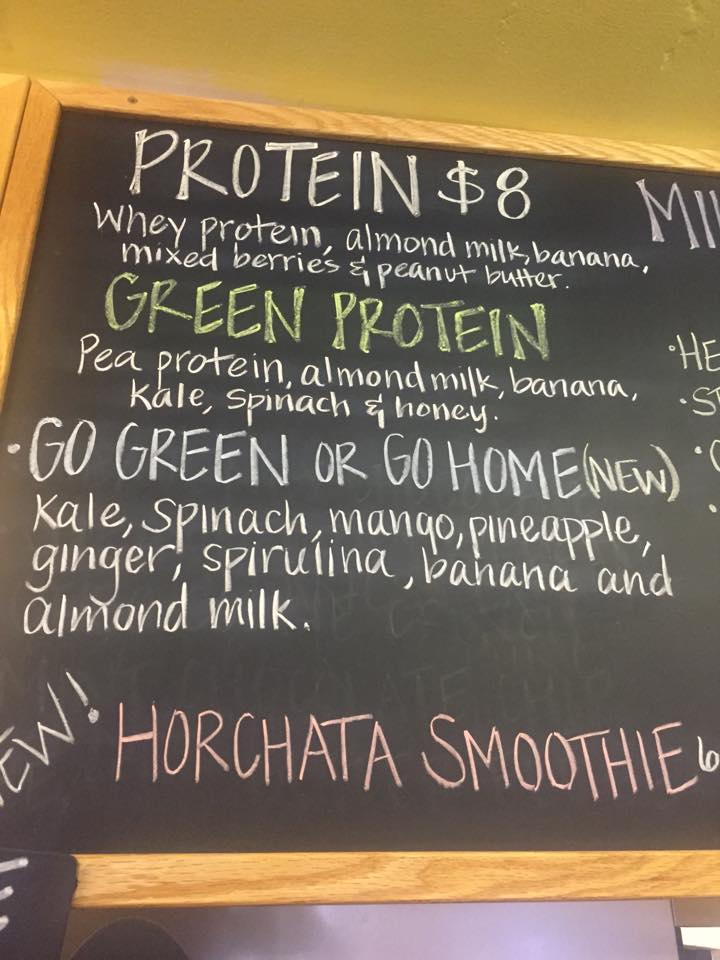 PROTEIN $8
Whey protein, almond milk, banana,
mixed berries & peanut butter.
GREEN PROTEIN
Pea protein, almond milk, banana,
kale, spinach & honey.
• GO GREEN OR GO HOME (NEW)
Kale, Spinach, mango, pineapple,
ginger, spirulina, banana and
almond milk.
HORCHATA SMOOTHIE